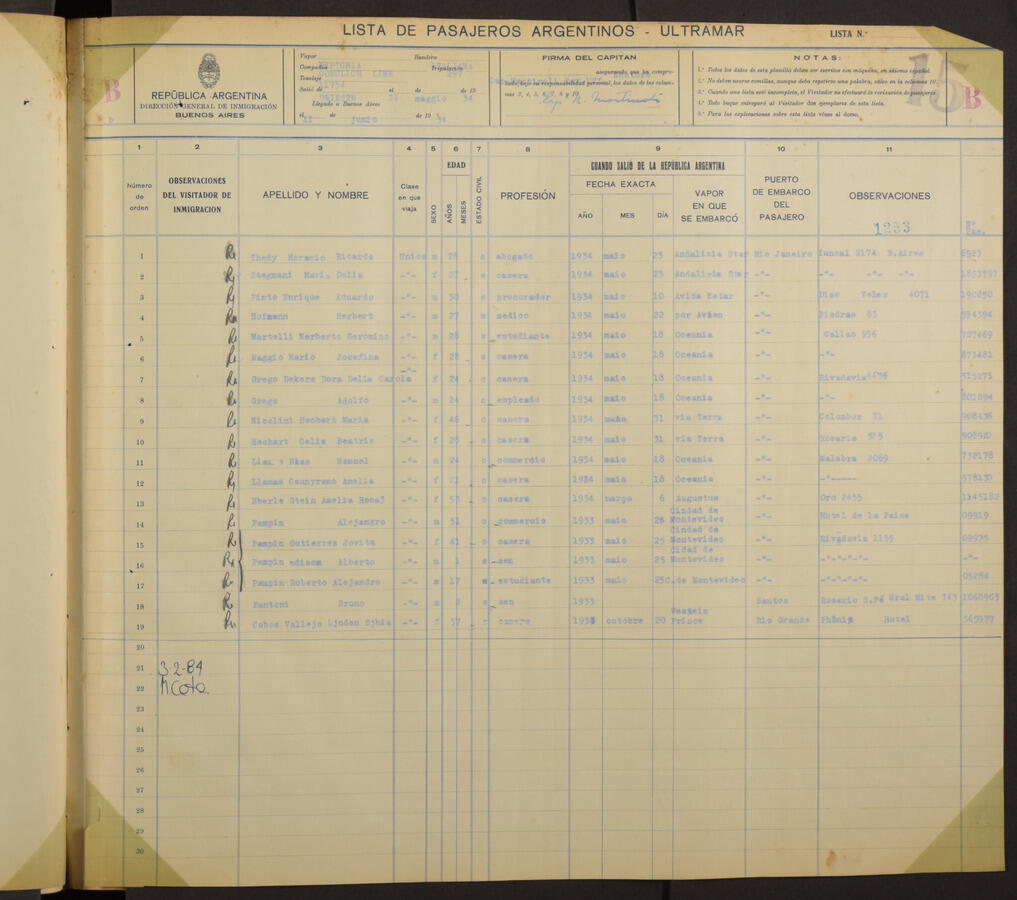 LISTA DE PASAJEROS ARGENTINOS - ULTRAMAR
LISTA N.º
REPÚBLICA ARGENTINA
DIRECCIÓN GENERAL DE INMIGRACIÓN
BUENOS AIRES
Vapor NEPTUNIA Bandera
Compañía COSULICH LINE Tripulación
Tonelaje
Salió de TRIESTE el 24 de maggio de 19 34
Llegado a Buenos Aires
el 11 de junio de 19 34
FIRMA DEL CAPITAN
asegurando que ha compro-
bado, bajo su responsabilidad personal, los datos de las colum-
nas 3, 4, 5, 6, 7, 8 y 10.
NOTAS:
1.º Todos los datos de esta planilla deben ser escritos con máquina, en idioma español.
2.º No deben usarse comillas, aunque deba repetirse una palabra, salvo en la columna 10.
3.º Cuando una lista esté incompleta, el Visitador no efectuará la revisación de pasajeros.
4.º Todo buque entregará al Visitador dos ejemplares de esta lista.
5.º Para las explicaciones sobre esta lista véase al dorso.
15 B
B
1 2 3 4 5 6 7 8 9 10 11
Número de orden
OBSERVACIONES DEL VISITADOR DE INMIGRACION
APELLIDO Y NOMBRE
Clase en que viaja
SEXO
EDAD
AÑOS
MESES
ESTADO CIVIL
PROFESIÓN
CUANDO SALIÓ DE LA REPÚBLICA ARGENTINA
FECHA EXACTA
AÑO MES DÍA
VAPOR EN QUE SE EMBARCÓ
PUERTO DE EMBARCO DEL PASAJERO
OBSERVACIONES
1253
Nº Pas.
1 Thedy Horacio Ricardo Unica m 26 abogado 1934 maio 23 Andalicia Star Rio Janeiro 2174 B.Aires 6923
2 Stegmani Maria Delia -"- f 27 casera 1934 maio 23 Andalicia Star -"- -"- -"- -"- 1853797
3 Pinto Enrique Eduardo -"- m 50 procurador 1934 maio 10 Avida Estar -"- Diaz Velez 4071 190850
4 Hofmann Herbert -"- m 27 medico 1934 maio 22 por Avion -"- Piedras 83 594394
5 Martelli Norberto Geronimo -"- m 28 estudiante 1934 maio 18 Oceania -"- Callao 956 707469
6 Maggio Mario Josefina -"- f 28 casera 1934 maio 18 Oceania -"- -"- 873481
7 Grego Dekers Dora Delia Carola -"- f 24 casera 1934 maio 18 Oceania -"- Rivadavia 515271
8 Grego Adolfo -"- m 24 empleado 1934 maio 18 Oceania -"- -"- 801894
9 Nicolini Hechart Maria -"- f 46 casera 1934 31 via Terra -"- Colombus 71 908436
10 Hechart Celia Beatris -"- f 20 casera 1934 maio 31 via Terra -"- Rosario 575 908920
11 -"- m 24 commercio 1934 maio 18 Oceania -"- Malabra 2089 732178
12 Llamas Amelia -"- f casera 1934 maio 18 Oceania -"- -"----- 578130
13 Eberle Stein Amelia Rosa -"- f 53 casera 1934 março 6 Augustus -"- Oro 2455 1145182
14 Pampin Alejandro -"- m 51 commercio 1933 maio 25 Ciudad de Montevideo -"- Hotel de la Paise 09919
15 Pampin Gutierres Jovita -"- f 41 casera 1933 maio 25 Ciudad de Montevideo -"- Rivadavia 1155 09935
16 Pampin edison Alberto -"- m 1 sen 1933 maio 25 Cidad de Montevideo -"- -"-"-"-"-
17 Pampin Roberto Alejandro -"- m 17 estudiante 1933 maio 25 C.de Montevideo -"- -"-"-"-"- 05284
18 Fantoni Bruno -"- m 2 sen 1933 Santos Rosario S.Fé Gral Mite 743 1068963
19 Cobos Vallejo -"- f 57 casera octubre 20 Prince Rio Grande Hotel 365977
20
21 3-2-84
22 A Cota
23
24
25
26
27
28
29
30